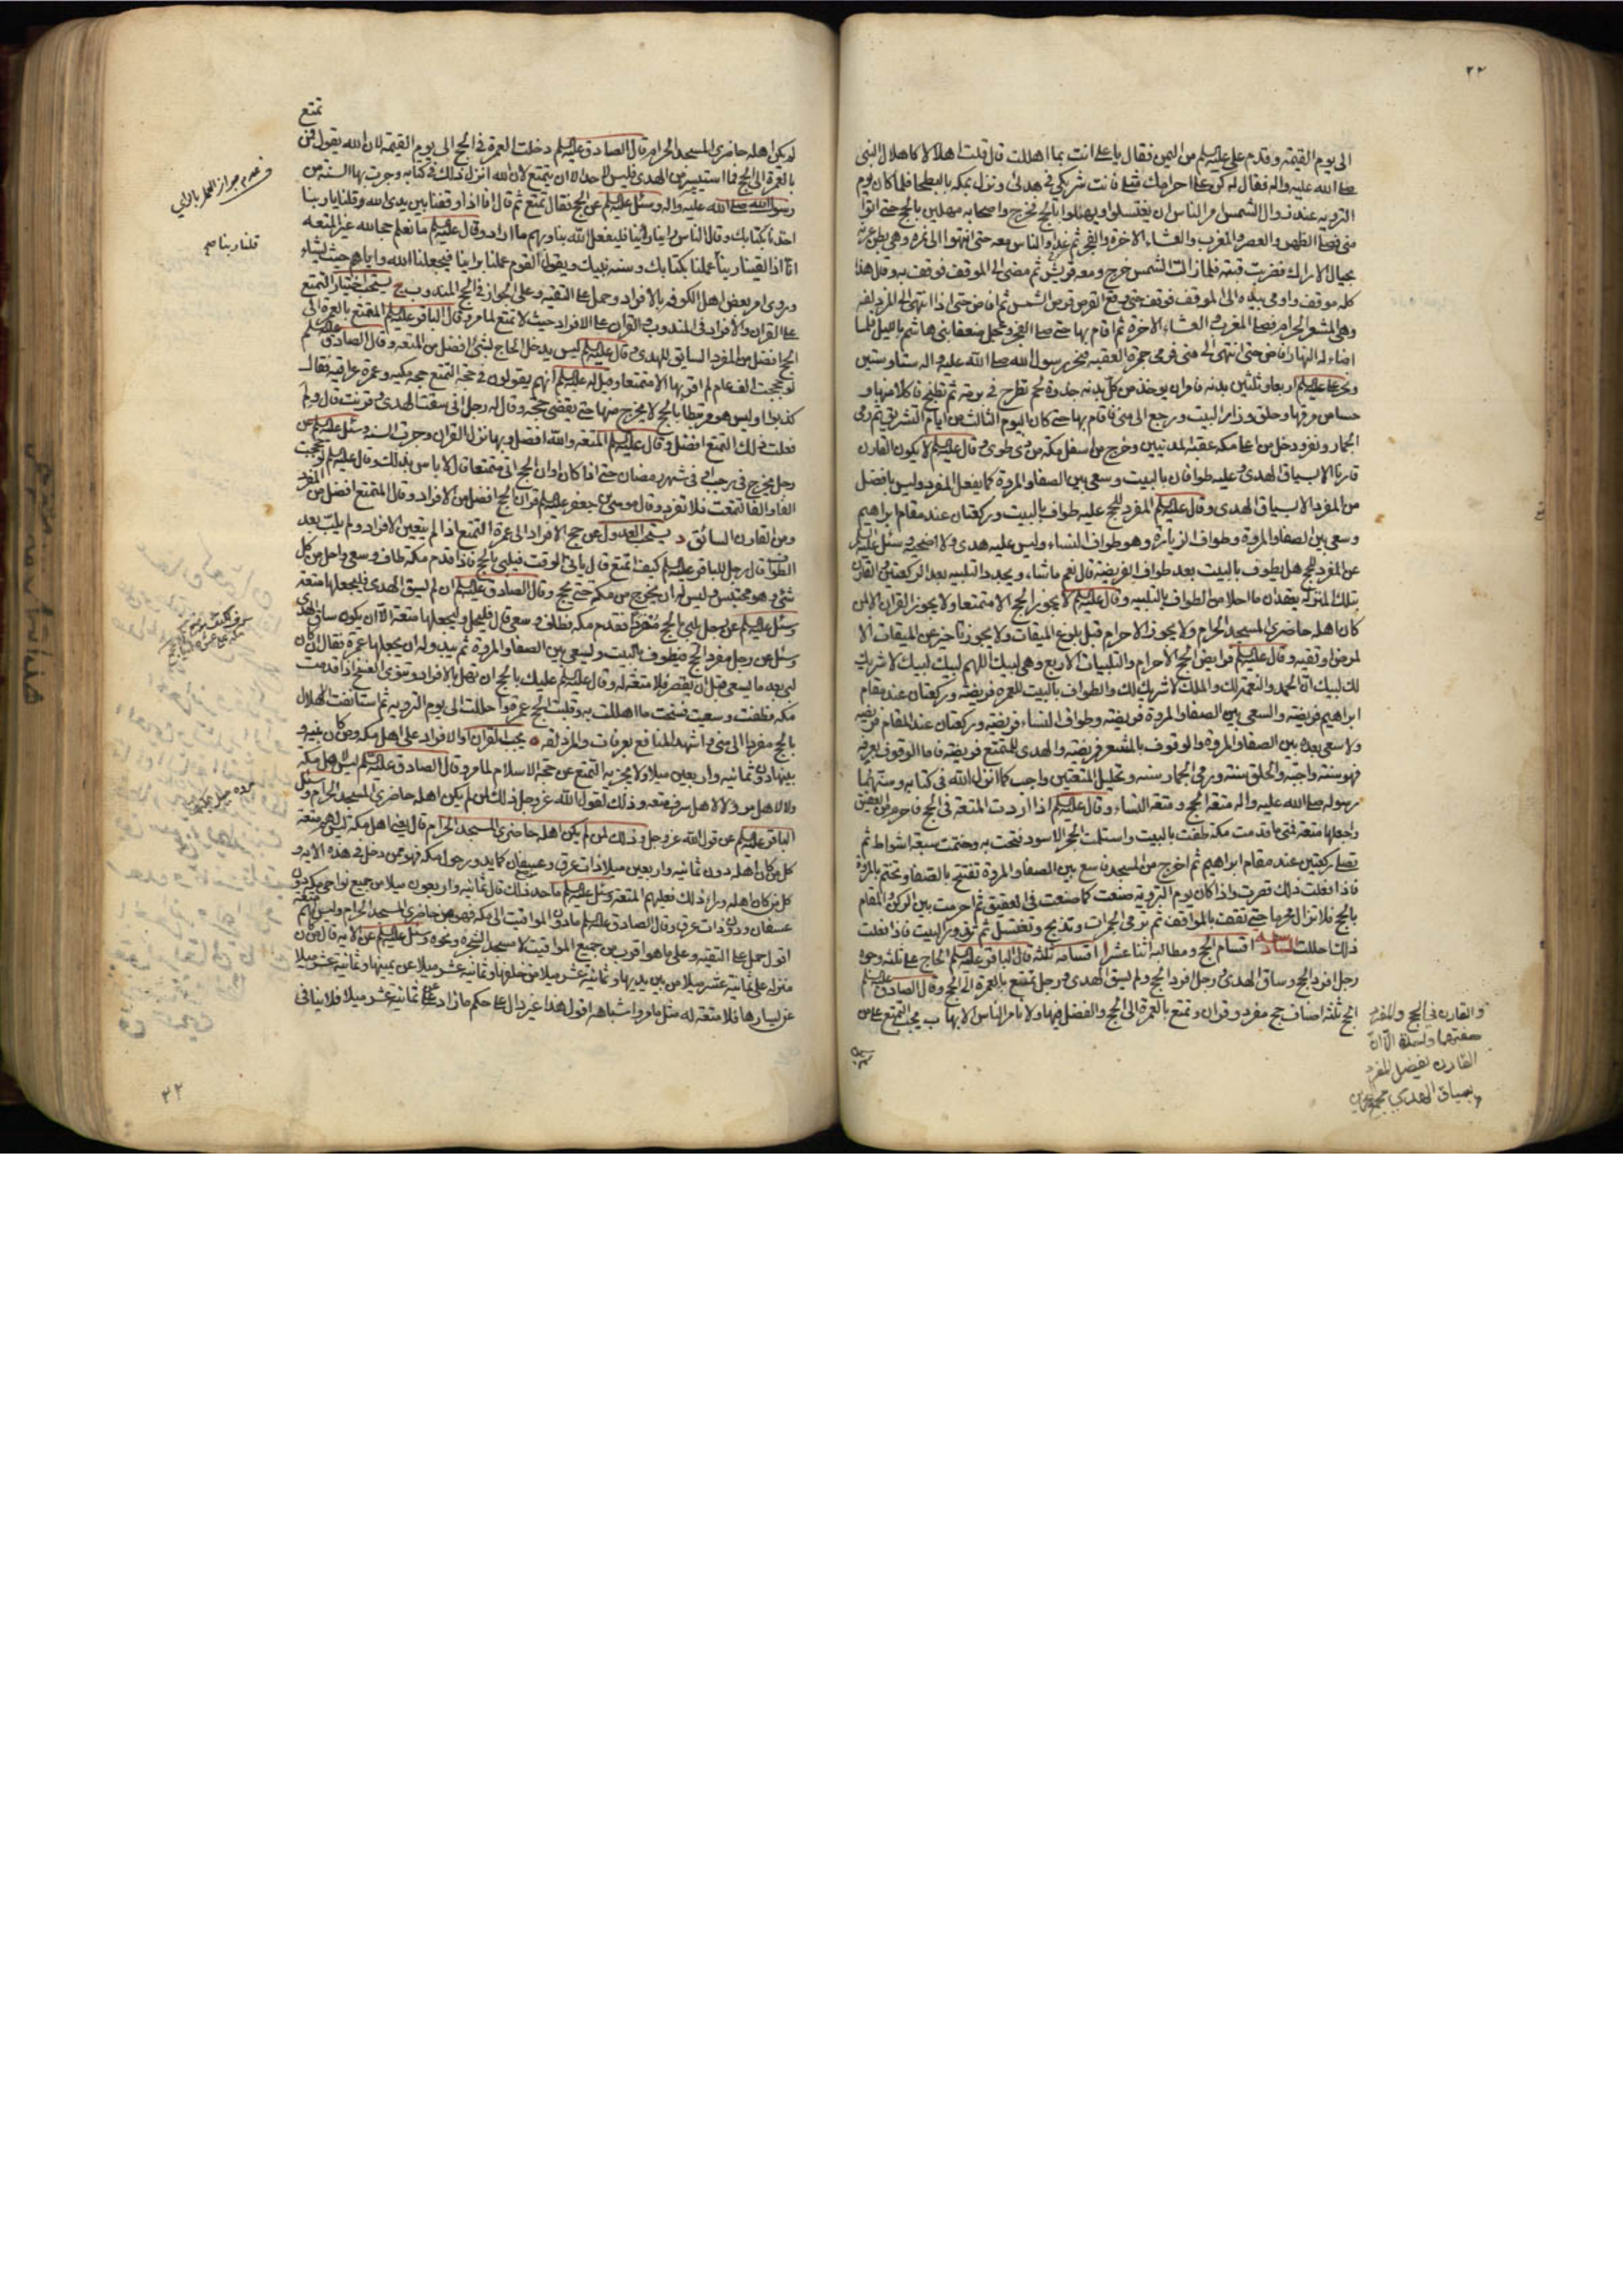 ٢٣
الى يوم القيمة وقدم على عليه السلم من اليمن فقال يا على انت بما اهللت قال قلت اهلالا كاهلال النبى
صلى الله عليه واله فقال له كن على احرامك مثلى فانت شريكى فى هديى ونزل بمكه بالبطحا فلما كان يوم
الترويه عند زوال الشمس امر الناس ان يغتسلوا ويهلوا بالحج فخرج واصحابه مهلين بالحج حتى اتوا
منى فصلى الظهر والعصر والمغرب والعشاء الاخرة والفجر ثم غدا والناس معه حتى انتهوا الى نمره وهى بطن عرنه
بحيال الاراك فضربت قبته فلما زالت الشمس خرج ومعه قريش ثم مضى الى الموقف فوقف به وقال هذا
كله موقف واومى بيده الى الموقف فوقف حتى وقع القرص قرص الشمس ثم افاض حتى اذا انتهى الى المزدلفه
وهى المشعر الحرام فصلى المغرب والعشاء الاخرة ثم اقام بها حتى صلى الفجر وعجل ضعفا بنى هاشم بالليل فلما
اضاء له النهار افاض حتى انتهى الى منى فرمى جمرة العقبه فنحر رسول الله صلى الله عليه واله ستا وستين
ونحر على عليه السلم اربعا وثلثين بدنه فامر ان يوخذ من كل بدنه جذوة لحم تطرح فى برمه ثم تطبخ فاكلا منها و
حسيا من مرقها وحلق وزار البيت ورجع الى منى فاقام بها حتى كان اليوم الثالث من ايام التشريق ثم رمى
الجمار ونفر ودخل من اعلى مكه عقبه المدنيين وخرج من اسفل مكه من ذى طوى وقال عليه السلم لا يكون القارن
قارنا الا بسياق الهدى وعليه طوافان بالبيت وسعى بين الصفا والمروة كما يفعل المفرد وليس بافضل
من المفرد الا بسياق الهدى وقال عليه السلم المفرد للحج عليه طواف بالبيت وركعتان عند مقام ابراهيم
وسعى بين الصفا والمروة وطواف الزيارة وهو طواف النساء وليس عليه هدى ولا اضحيه وسئل عليه السلم
عن المفرد للحج هل يطوف بالبيت بعد طواف الفريضه قال نعم ما شاء ويجدد التلبيه بعد الركعتين والقارن
بتلك المنزله يعقدان ما احلا من الطواف بالتلبيه وقال عليه السلم لا يجوز الحج الا متمتعا ولا يجوز القران الا لمن
كان اهله حاضرى المسجد الحرام ولا يجوز الاحرام قبل بلوغ الميقات ولا يجوز تاخيره عن الميقات الا
لمرض او تقيه وقال عليه السلم فرايض الحج الاحرام والتلبيات الاربع وهى لبيك اللهم لبيك لبيك لا شريك
لك لبيك ان الحمد والنعمة لك والملك لا شريك لك والطواف بالبيت للعمره فريضه وركعتان عند مقام
ابراهيم فريضه والسعى بين الصفا والمروة فريضه وطواف النساء فريضه وركعتان عند المقام فريضه
ولا سعى بعده بين الصفا والمروة والوقوف بالمشعر فريضه والهدى للمتمتع فريضه فاما الوقوف بعرفه
فهو سنة واجبة والحلق سنة ورمى الجمار سنه وتحليل المتعتين واجب كما انزل الله فى كتابه وسنهما
رسوله صلى الله عليه واله متعة الحج ومتعة النساء وقال عليه السلم اذا اردت المتعة فى الحج فاحرم من العقيق
واجعلها متعة فمتى ما قدمت مكه طفت بالبيت واستلمت الحجر الاسود فتحت به وختمت سبعة اشواط ثم
تصلى ركعتين عند مقام ابراهيم ثم اخرج من المسجد فاسع بين الصفا والمروة تفتتح بالصفا وتختم بالمروة
فاذا فعلت ذلك قصرت واذا كان يوم الترويه صنعت كما صنعت فى العقيق ثم احرمت بين الركن والمقام
بالحج فلا تزال محرما حتى تقف بالمواقف ثم ترمى الجمرات وتذبح وتغتسل ثم تزور البيت فاذا فعلت
ذلك احللت اقسام الحج ومطالبه اثنا عشر ا اقسامه ثلثة قال الباقر عليه السلم الحاج على ثلثه وجوه
رجل افرد الحج وساق الهدى ورجل افرد الحج ولم يسق الهدى ورجل تمتع بالعمرة الى الحج وقال الصادق عليه السلم
الحج ثلثة اصناف حج مفرد وقران وتمتع بالعمرة الى الحج والفضل فيها ولا نامر الناس الا بها ب يجب التمتع على من
والقارن فى الحج والمفرد
صفتهما واحدة الا ان
القارن يفضل المفرد
بسياق الهدى مجمع البحرين
تمتع
لم يكن اهله حاضرى المسجد الحرام قال الصادق عليه السلم دخلت العمرة فى الحج الى يوم القيمة لان الله يقول فمن
بالعمرة الى الحج فما استيسر من الهدى فليس لاحد الا ان يتمتع لان الله انزل ذلك فى كتابه وجرت بها السنة من
رسول الله صلى الله عليه واله وسئل عليه السلم عن الحج فقال تمتع ثم قال انا اذا وقفنا بين يدى الله وقلنا يا ربنا
اخذنا بكتابك وقال الناس راينا راينا فليفعل الله بنا وبهم ما اراد وقال عليه السلم ما نعلم حجا لله غير المتعه
انا اذا لقينا ربنا عملنا بكتابك وسنه نبيك ويقول القوم عملنا براينا فيجعلنا الله واياهم حيث يشاء
وروى امر بعض اهل الكوفه بالافراد وحمل على التقيه وعلى الجواز فى الحج المندوب ج يستحب اختيار التمتع
على القران والافراد فى المندوب والقران على الافراد حيث لا تمتع لما مر وقال الباقر عليه السلم المتمتع بالعمرة الى
الحج افضل من المفرد السايق للهدى وقال عليه السلم ليس يدخل الحاج بشئ افضل من المتعه وقال الصادق عليه السلم
لو حججت الف عام لم اقربها الا متمتعا وقيل له عليه السلم انهم يقولون فى حجة التمتع حجه مكيه وعمره عراقيه فقال
كذبوا اوليس هو مرتبطا بالحج لا يخرج منها حتى يقضى حجه وقال له رجل انى سقت الهدى وقرنت قال ولم
فعلت ذلك التمتع افضل وقال عليه السلم المتعه والله افضل وبها نزل القران وجرت السنه وسئل عليه السلم عن
رجل يخرج فى رجب او فى شهر رمضان حتى اذا كان اوان الحج اتى متمتعا قال لا باس بذلك وقال عليه السلم لو حججت
الفا والفا لتمتعت فلا تفرد وقال موسى بن جعفر عليه السلم قران الحج افضل من الافراد وقال المتمتع افضل من المفرد
ومن القارن السائق د يستحب العدول عن حج الافراد الى عمرة التمتع اذا لم يتعين الافراد ولم يلب بعد
الطواف قال رجل للباقر عليه السلم كيف اتمتع قال ياتى الوقت فيلبى بالحج فاذا قدم مكه طاف وسعى واحل من كل
شئ وهو محتبس وليس له ان يخرج من مكه حتى يحج وقال الصادق عليه السلم ان لم يسق الهدى فليجعلها متعه
وسئل عليه السلم عن رجل لبى بالحج مفردا فقدم مكه فطاف وسعى قال فليحل وليجعلها متعة الا ان يكون ساق الهدى
وسئل عن رجل مفرد الحج فيطوف بالبيت وليسعى بين الصفا والمروة ثم يبدو له ان يجعلها عمرة فقال ان كان
لبى بعد ما يسعى قبل ان يقصر فلا متعة له وقال عليه السلم عليك بالحج ان تهل بالافراد وتنوى الفسخ اذا قدمت
مكه فطفت وسعيت فسخت ما اهللت به وقلبت الحج عمره واحللت الى يوم الترويه ثم استانفت الاهلال
بالحج مفردا الى منى واشهد المنافع بعرفات والمزدلفه ه يجب القران او الافراد على اهل مكه ومن كان بينه و
بينها دون ثمانيه واربعين ميلا ولا يجزيه التمتع عن حجة الاسلام لما مر وقال الصادق عليه السلم ليس لاهل مكه
ولا لاهل مر ولا لاهل سرف متعه وذلك لقول الله عز وجل ذلك لمن لم يكن اهله حاضرى المسجد الحرام وسئل
الباقر عليه السلم عن قول الله عز وجل وذلك لمن لم يكن اهله حاضرى المسجد الحرام قال يعنى اهل مكه ليس لهم متعه
كل من كان اهله دون ثمانيه واربعين ميلا ذات عرق وعسفان كما يدور حول مكه فهو ممن دخل فى هذه الايه و
كل من كان اهله وراء ذلك فعليهم المتعه وسئل عليه السلم ما حد ذلك قال ثمانيه واربعون ميلا من جميع نواحى مكه دون
عسفان ودون ذات عرق وقال الصادق عليه السلم ما دون المواقيت الى مكه فهو من حاضرى المسجد الحرام وليس لهم متعه
اقول حمل على التقيه وعلى ما هو اقرب من جميع المواقيت لا مسجد الشجرة ونحوه وسئل عليه السلم عن الايه قال من كان
منزله على ثمانية عشر ميلا من بين يديها وثمانية عشر ميلا من خلفها وثمانية عشر ميلا عن يمينها وثمانية عشر ميلا
عن يسارها فلا متعة له مثل مر واشباهه اقول هذا غير دال على حكم ما زاد على ثمانية عشر ميلا فلا ينافى
فى عدم جواز العمل بالراى
قلنا ربنا صح
٢٢